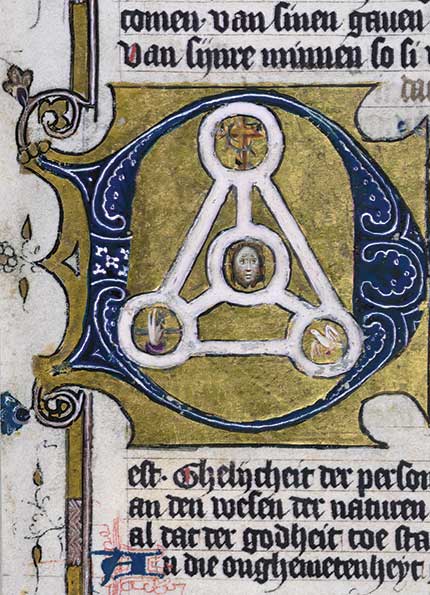 comen· van sinen gauen
van sijnre minnen so si v
dat
est· Ghelijcheit der person
an den wesen der naturen
al dat ter godheit toe sta
An die onghemetenheyt